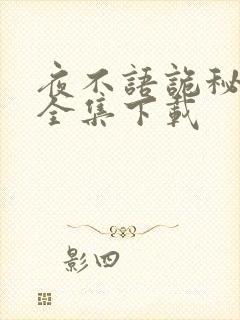 夜不語詭秘
全集下載
影四